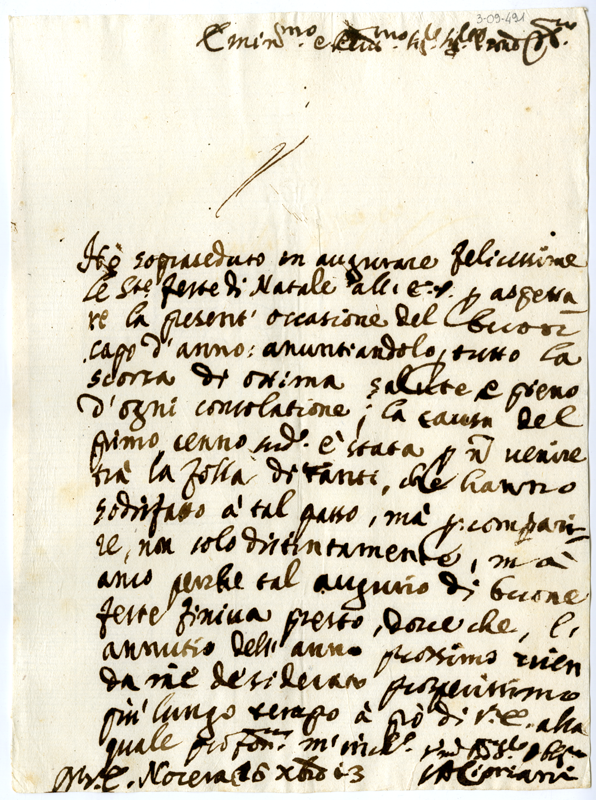 3-09-491
Emin.mo e
Hò sopraseduto in augurare felicissime
le S.te feste di Natale all' E. V. p aspetta
re la present' occasione del buon
capo d'anno: anuntiandolo, tutto la
scorza di otima salute e pieno
d'ogni consolatione; la causa del
primo cenno sud.o è stata p nõ venire
trà la folla di tanti, che hanno
sodisfatto à tal passo, mà p compari-
re, non solo distintamente, mà
anco perche tal augurio di buone
feste finiva presto, dove che, l'
annutio dell' anno prossimo vien
da me desiderato prosperissimo
più lungo tempo à prò di V. E. alla
quale m'inch.o
Nocera 26 Xbro
Cipriani